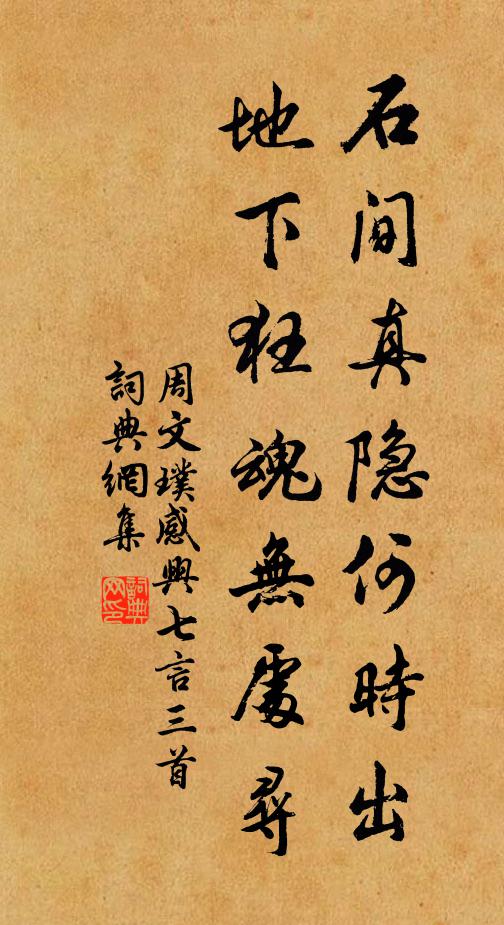 石间真隐何時出
地下狂魂無處尋
周文璞感興七言三首
詞典網集
詞典网印